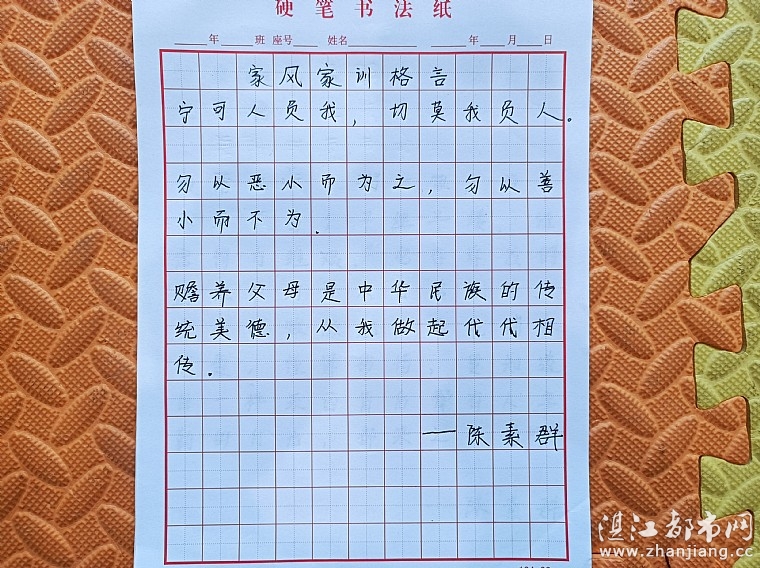 硬笔书法纸
年 班 座号 姓名 年 月 日
家风家训格言
宁可人负我，切莫我负人。
勿以恶小而为之，勿以善
小而不为.
赡养父母是中华民族的传
统美德，从我做起代代相
传。
——陈素群
湛江都市网
www.zhanjiang.cc